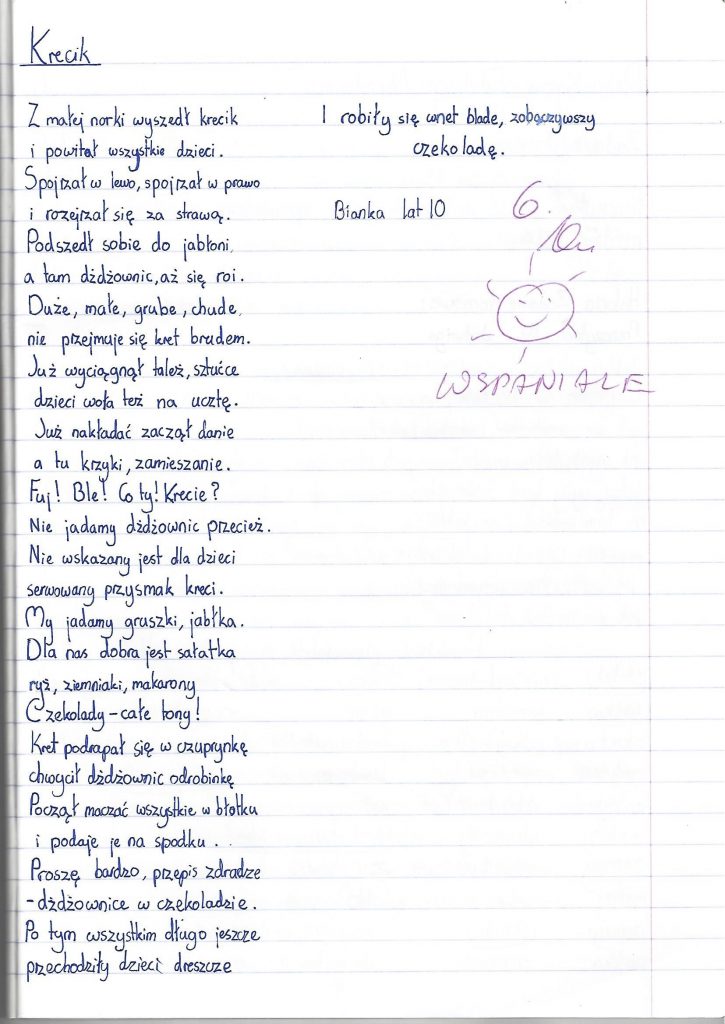 Krecik
Z małej norki wyszedł krecik
i powitał wszystkie dzieci.
Spojrzał w lewo, spojrzał w prawo
i rozejrzał się za strawą.
Podszedł sobie do jabłoni,
a tam dżdżownic, aż się roi.
Duże, małe, grube, chude,
nie przejmuje się kret brudem.
Już wyciągnął taleź, sztućce
dzieci woła też na ucztę.
Już nakładać zaczął danie
a tu krzyki, zamieszanie.
Fuj! Ble! Co ty! Krecie?
Nie jadamy dżdżownic przecież.
Nie wskazany jest dla dzieci
serwowany przysmak kreci.
My jadamy gruszki, jabłka.
Dla nas dobra jest sałatka
ryż, ziemniaki, makarony
Czekolady - całe tony!
Kret podrapał się w czuprynkę
chwycił dżdżownic odrobinkę
Począł maczać wszystkie w błotku
i podaje je na spodku..
Proszę bardzo, przepis zdradze
- dżdżownice w czekoladzie.
Po tym wszystkim długo jeszcze
przechodziły dzieci dreszcze
I robiły się wnet blade, zobaczywszy
czekoladę.
Bianka lat 10
6.
WSPANIALE